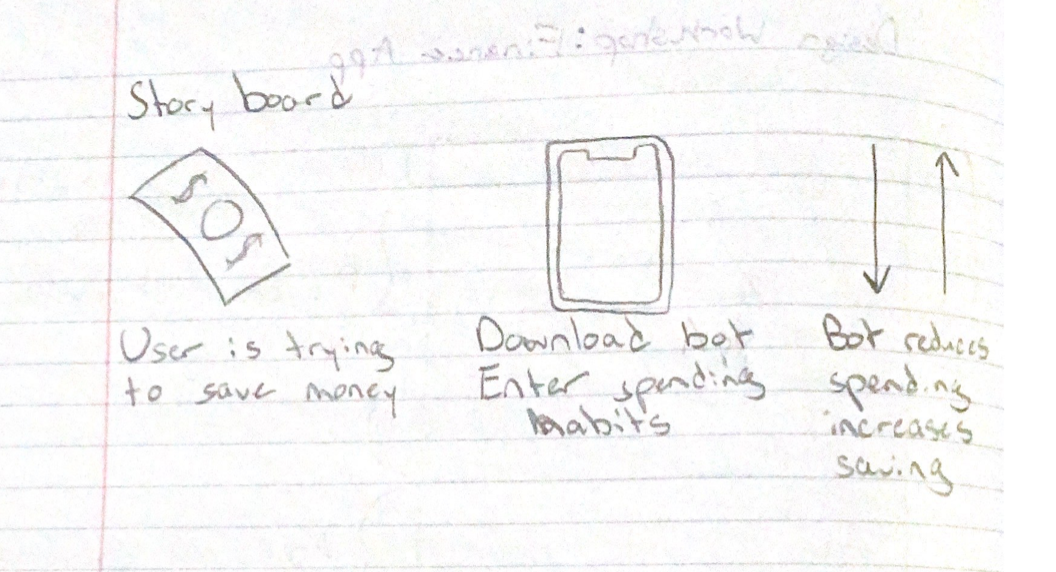 Story board
User is trying
to save money
Download bot
Enter spending
habits
Bot reduces
spending
increases
saving